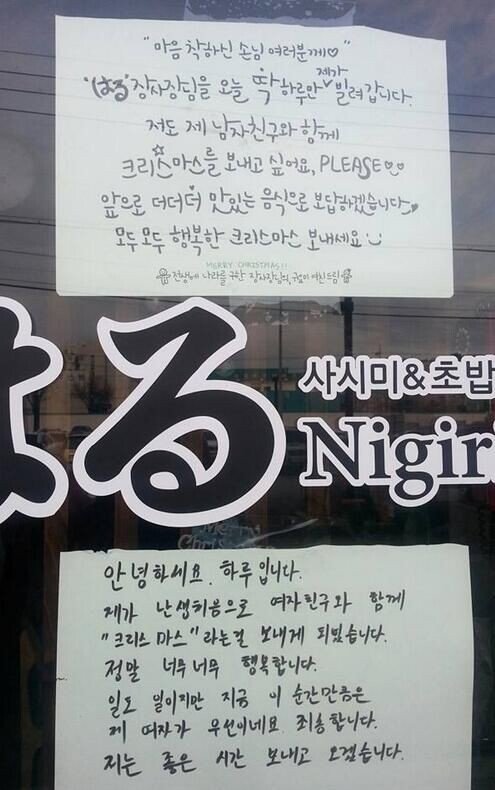 "마음 착하신 손님 여러분께♡"
'はる'장사장님을 오늘 딱 하루만 제가 빌려갑니다.
저도 제 남자친구와 함께
크리스마스를 보내고 싶어요, PLEASE♡
앞으로 더더더 맛있는 음식으로 보답하겠습니다
모두모두 행복한 크리스마스 보내세요
MERRY CHRISTMAS!!
전생에 나라를 구한 장사장님의, 귀요미 여친드림
はる
사시미&초밥
Nigiri
Merry
Christmas
안녕하세요. 하루입니다.
제가 난생처음으로 여자친구와 함께
"크리스마스"라는걸 보내게 되었습니다.
정말 너무너무 행복합니다.
일도 일이지만 지금 이 순간만큼은
제 여자가 우선이네요. 죄송합니다.
저는 좋은 시간 보내고 오겠습니다.